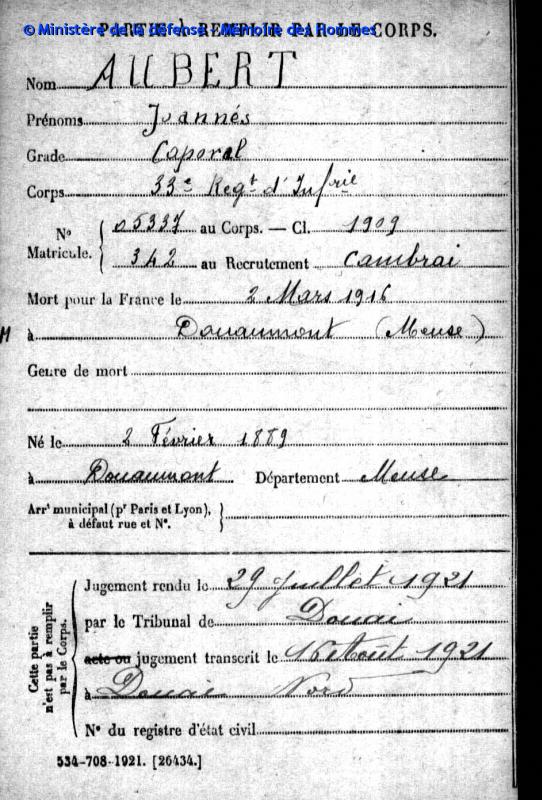 PARTIE À REMPLIR PAR LE CORPS.
© Ministère de la défense - Mémoire des Hommes
Nom AUBERT
Prénoms Joannés
Grade Caporal
Corps 33e Regt d'Infrie
No Matricule. 05337 au Corps. — Cl. 1909
342 au Recrutement Cambrai
Mort pour la France le 2 Mars 1916
à Douaumont (Meuse)
Genre de mort
Né le 2 Février 1889
à Douaumont Département Meuse
Arrt municipal (pr Paris et Lyon),
à défaut rue et No.
Cette partie n'est pas à remplir par le Corps.
Jugement rendu le 29 Juillet 1921
par le Tribunal de Douai
acte ou jugement transcrit le 16 Aout 1921
à Douai Nord
No du registre d'état civil
534-708-1921. [26434.]